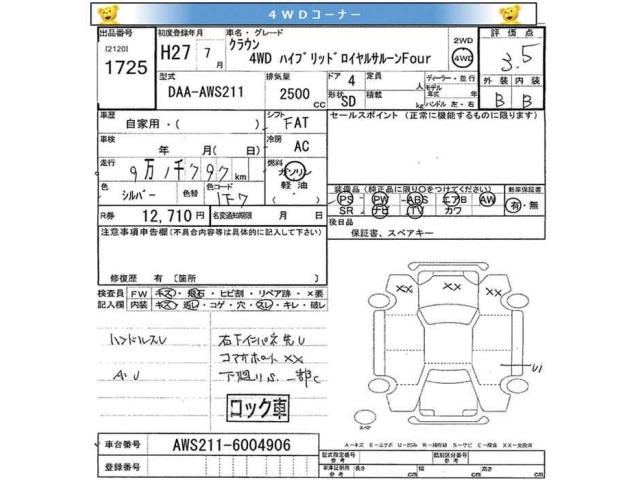 4WDコーナー
出品番号
[2120]
1725
初度登録年月
H27 7月
車名・グレード
クラウン
4WD ハイブリッドロイヤルサルーンFour
2WD
4WD
評価点
3.5
外装 内装
B B
型式
DAA-AWS211
排気量
2500 CC
ドア 4
形状 SD
定員 人
積載 kg
ディーラー・並行
モデル年式 年
ハンドル 左・右
車歴
自家用・( )
シフト
FAT
セールスポイント (正常に機能するものに限ります)
車検
年 月( 日)
冷房
AC
走行
9万1千797km
燃料
ガソリン
軽油
色
シルバー
色替
色コード
1F7
装備品(純正品に限り○をつけてください)
PS PW ABS エアB AW
SR ナビ TV カワ
新車保証書
有・無
R券 12,710 円
名変通知期限 月 日
後日品
保証書、スペアキー
注意事項申告欄(不具合内容等は具体的に記入して下さい)
修復歴 有 [箇所 ]
検査員 FW キズ・飛石・ヒビ割・リペア跡・×要
記入欄 内装 キズ・返し・コゲ・穴・スレ・キレ・破レ
ハンドルスレ
AU
ロック車
XX
XX
XX
U1
スペア
A-キズ E-エクボ U-凹み W-補修跡 S-サビ C-腐蝕 XX-交換済
車台番号 AWS211-6004906
登録番号
型式指定番号
参考
類別区分番号
参考
車庫証明用
参考
長さ cm
幅 cm
高さ cm